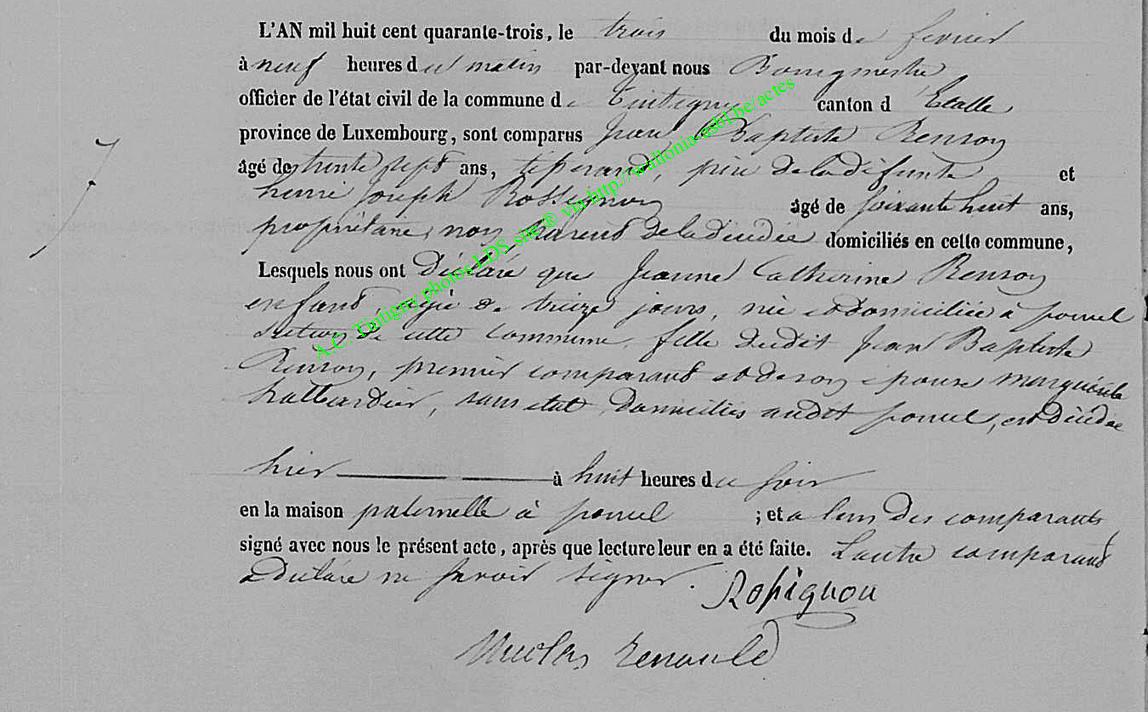 L'AN mil huit cent quarante-trois, le trois du mois de fevrier
à neuf heures du matin par-devant nous Bourgmestre
officier de l'état civil de la commune de Tintigny canton d'Etalle
province de Luxembourg, sont comparus Jean Baptiste Renson
7
âgé de trente sept ans, père de la défunte et
henri Joseph Rossignon âgé de soixante huit ans,
propriétaire, non parent de la décédée domiciliés en cette commune,
Lesquels nous ont Déclaré que Jeanne Catherine Renson
enfant, agée de treize jours, née et domiciliée à
section de cette commune, fille dudit Jean Baptiste
Renson, premier comparant et de son épouse marguerite
sans etat, domiciliés audit est décédée
hier à huit heures du soir
en la maison paternelle à ; et a l'un des comparants
signé avec nous le présent acte, après que lecture leur en a été faite. L'autre comparant
a déclaré ne savoir signer. Rossignon
Nicolas Renauld
A.C. Tintigny photos LDS_site® via http://wallonia-asbl.be/actes